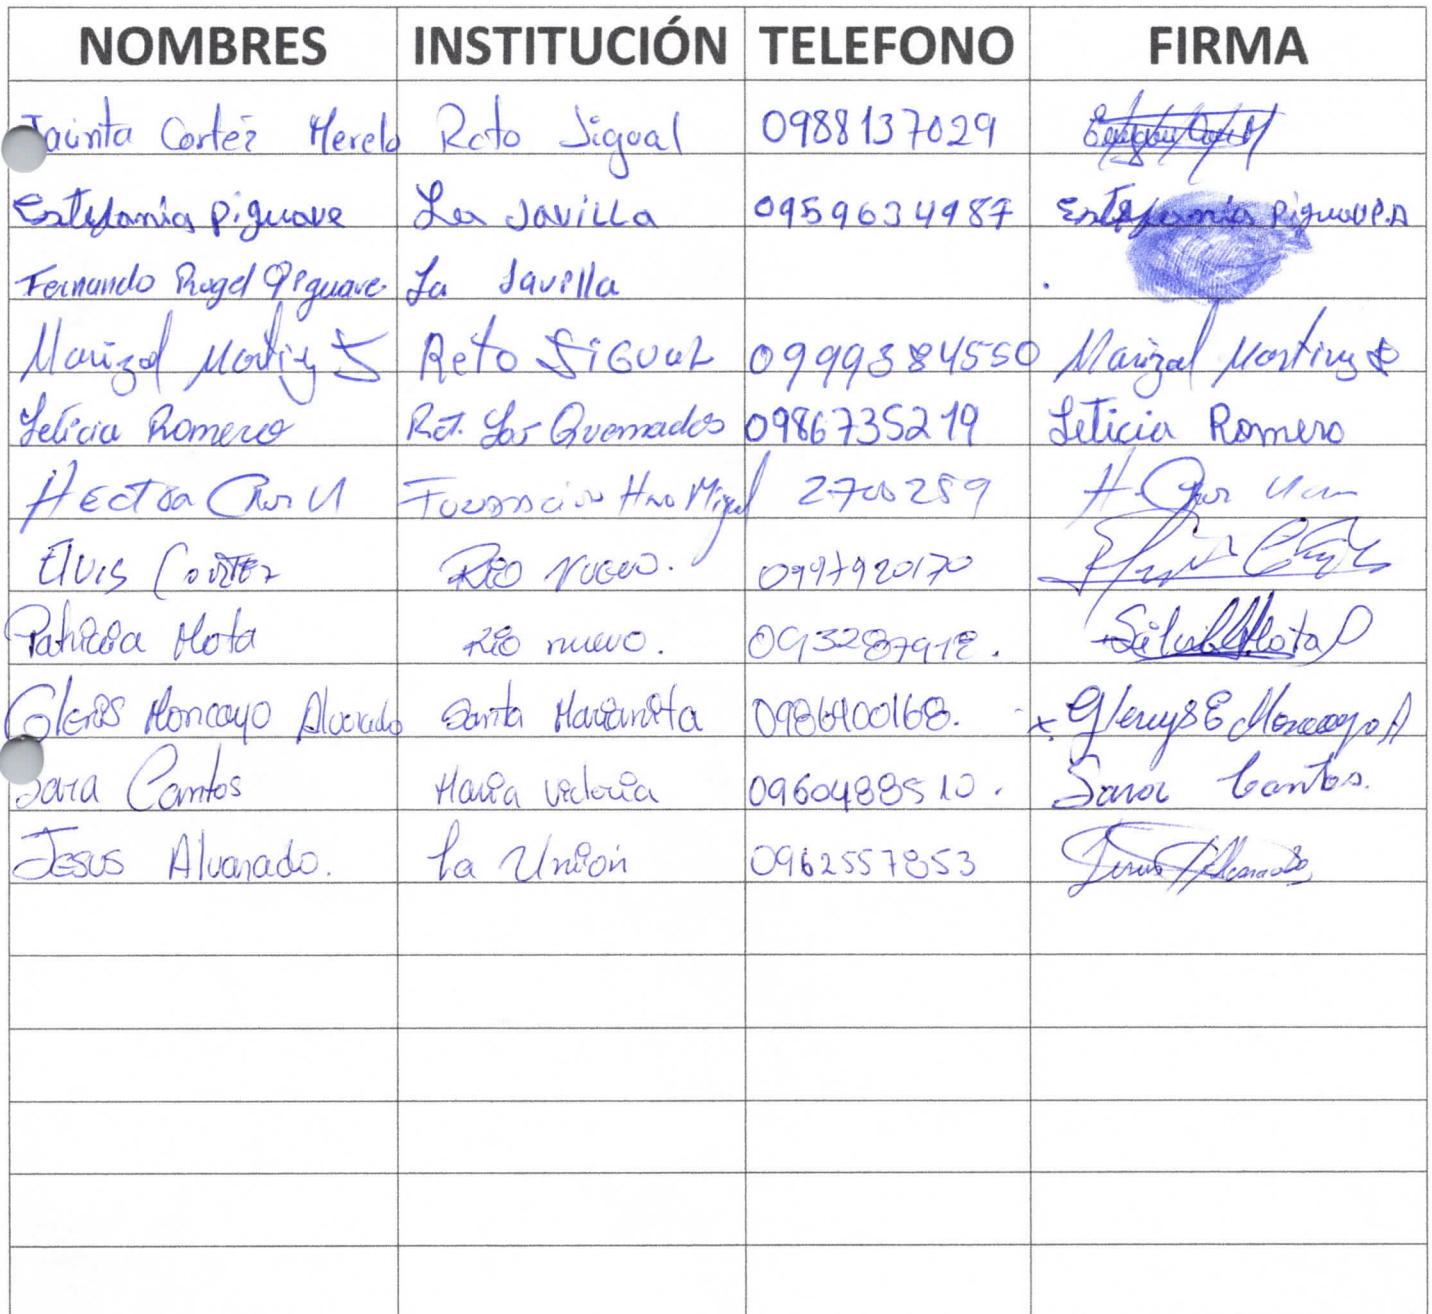 NOMBRES INSTITUCIÓN TELEFONO FIRMA
Jacinta Cortéz Merelo Rcto Sigual 0988137029
Estefania Piguave La Savilla 0959634987 Estefania Piguave P.A
Fernando Rugel Piguave La Savilla
Marizol Martinz S Reto SiGuaL 0999384550 Marizol Martinz S
Leticia Romero Rct. Los Quemados 0986735219 Leticia Romero
HECTOR Hno Miguel 2700289 H.
Elvis CORTEZ Rio Nuevo. 0997920170
Patricia Mota Rio nuevo. 093287912. Silvia Mota P
Glenis Moncayo Alvarado Santa Marianita 0986400168. x Glenys E Moncayo A
Sara Cantos Maria Victoria 0960488510. Sara Cantos.
Jesus Alvarado. La Unión 0962557853 Jesus Alvarado